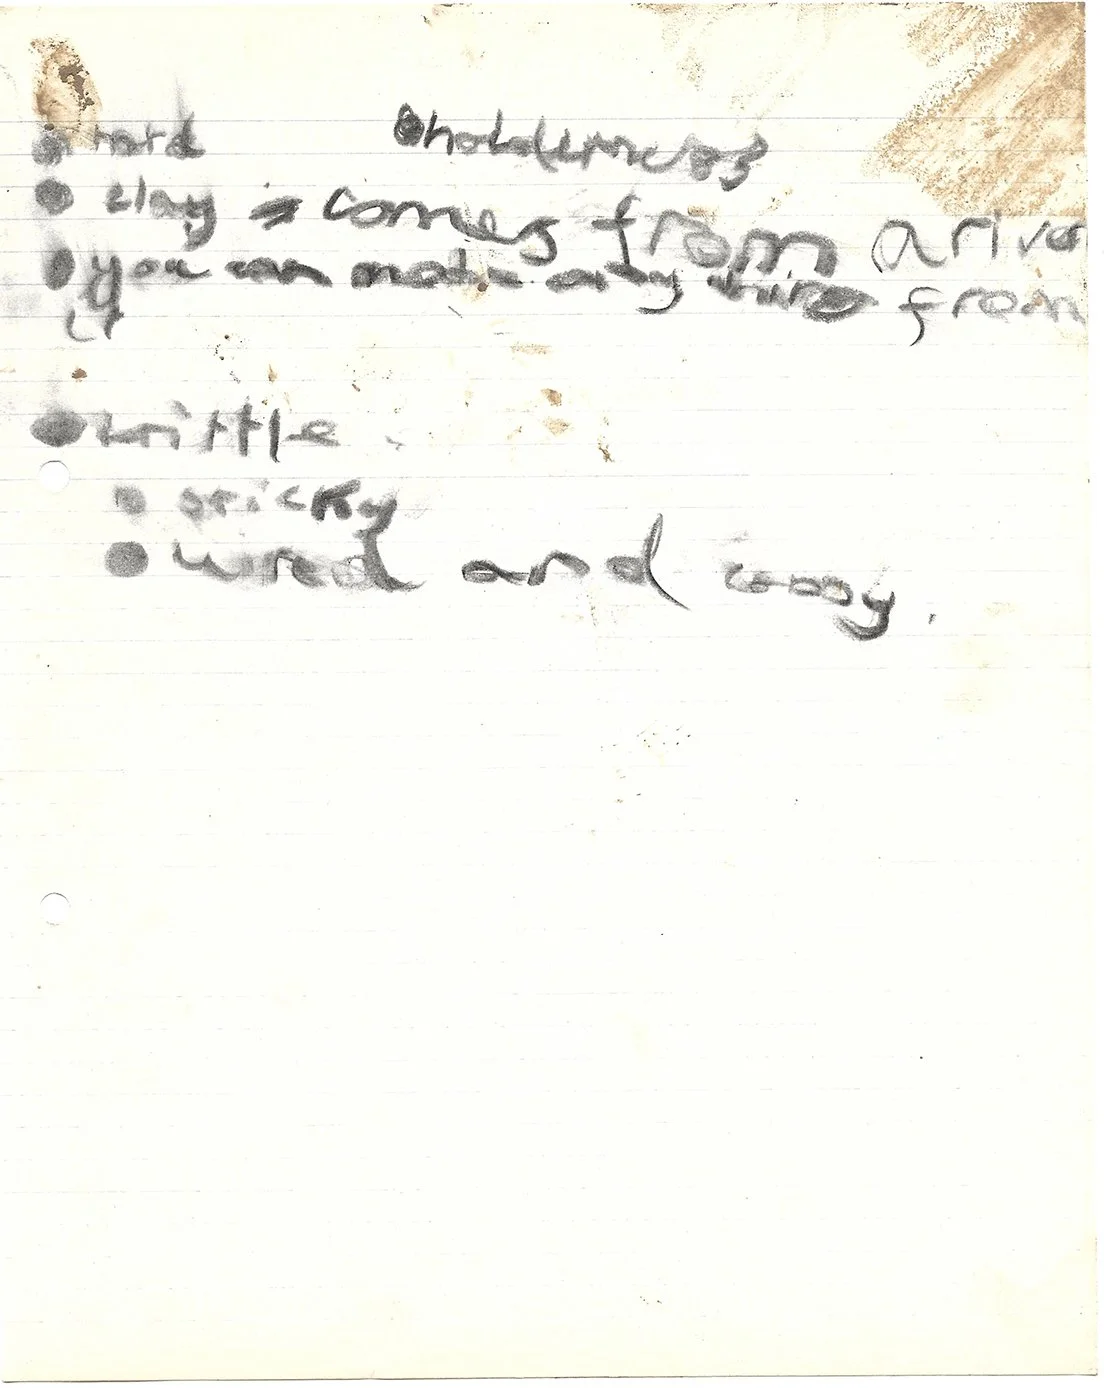 hard holderness
clay comes from a river
you can make any thing from
it
brittle
sticky
wired and